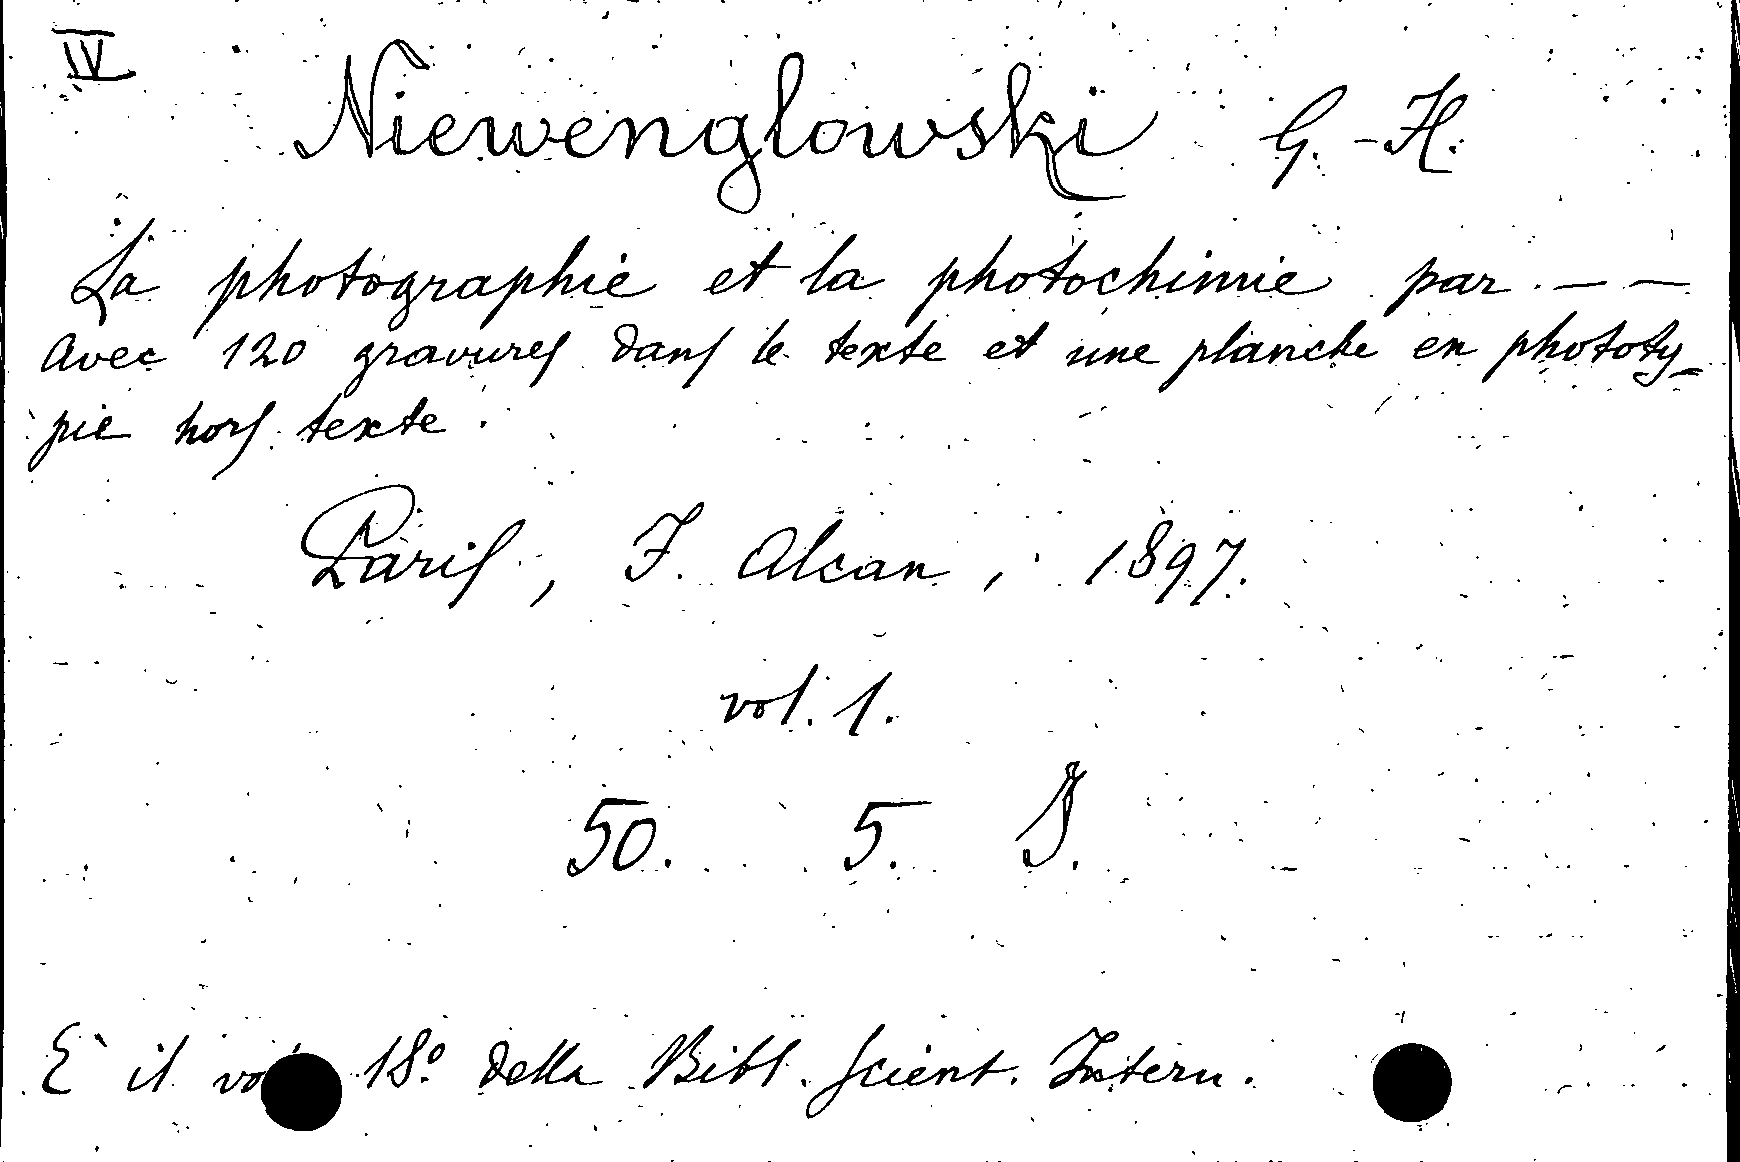 IV
Niewenglowski G.-H.
La photographie et la photochimie par — —
avec 120 gravures dans le texte et une planche en phototy-
pie hors texte.
Paris, F. Alcan, 1897.
vol. 1.
50. 5. J.
E' il 18.° della Bibl. scient. Intern.